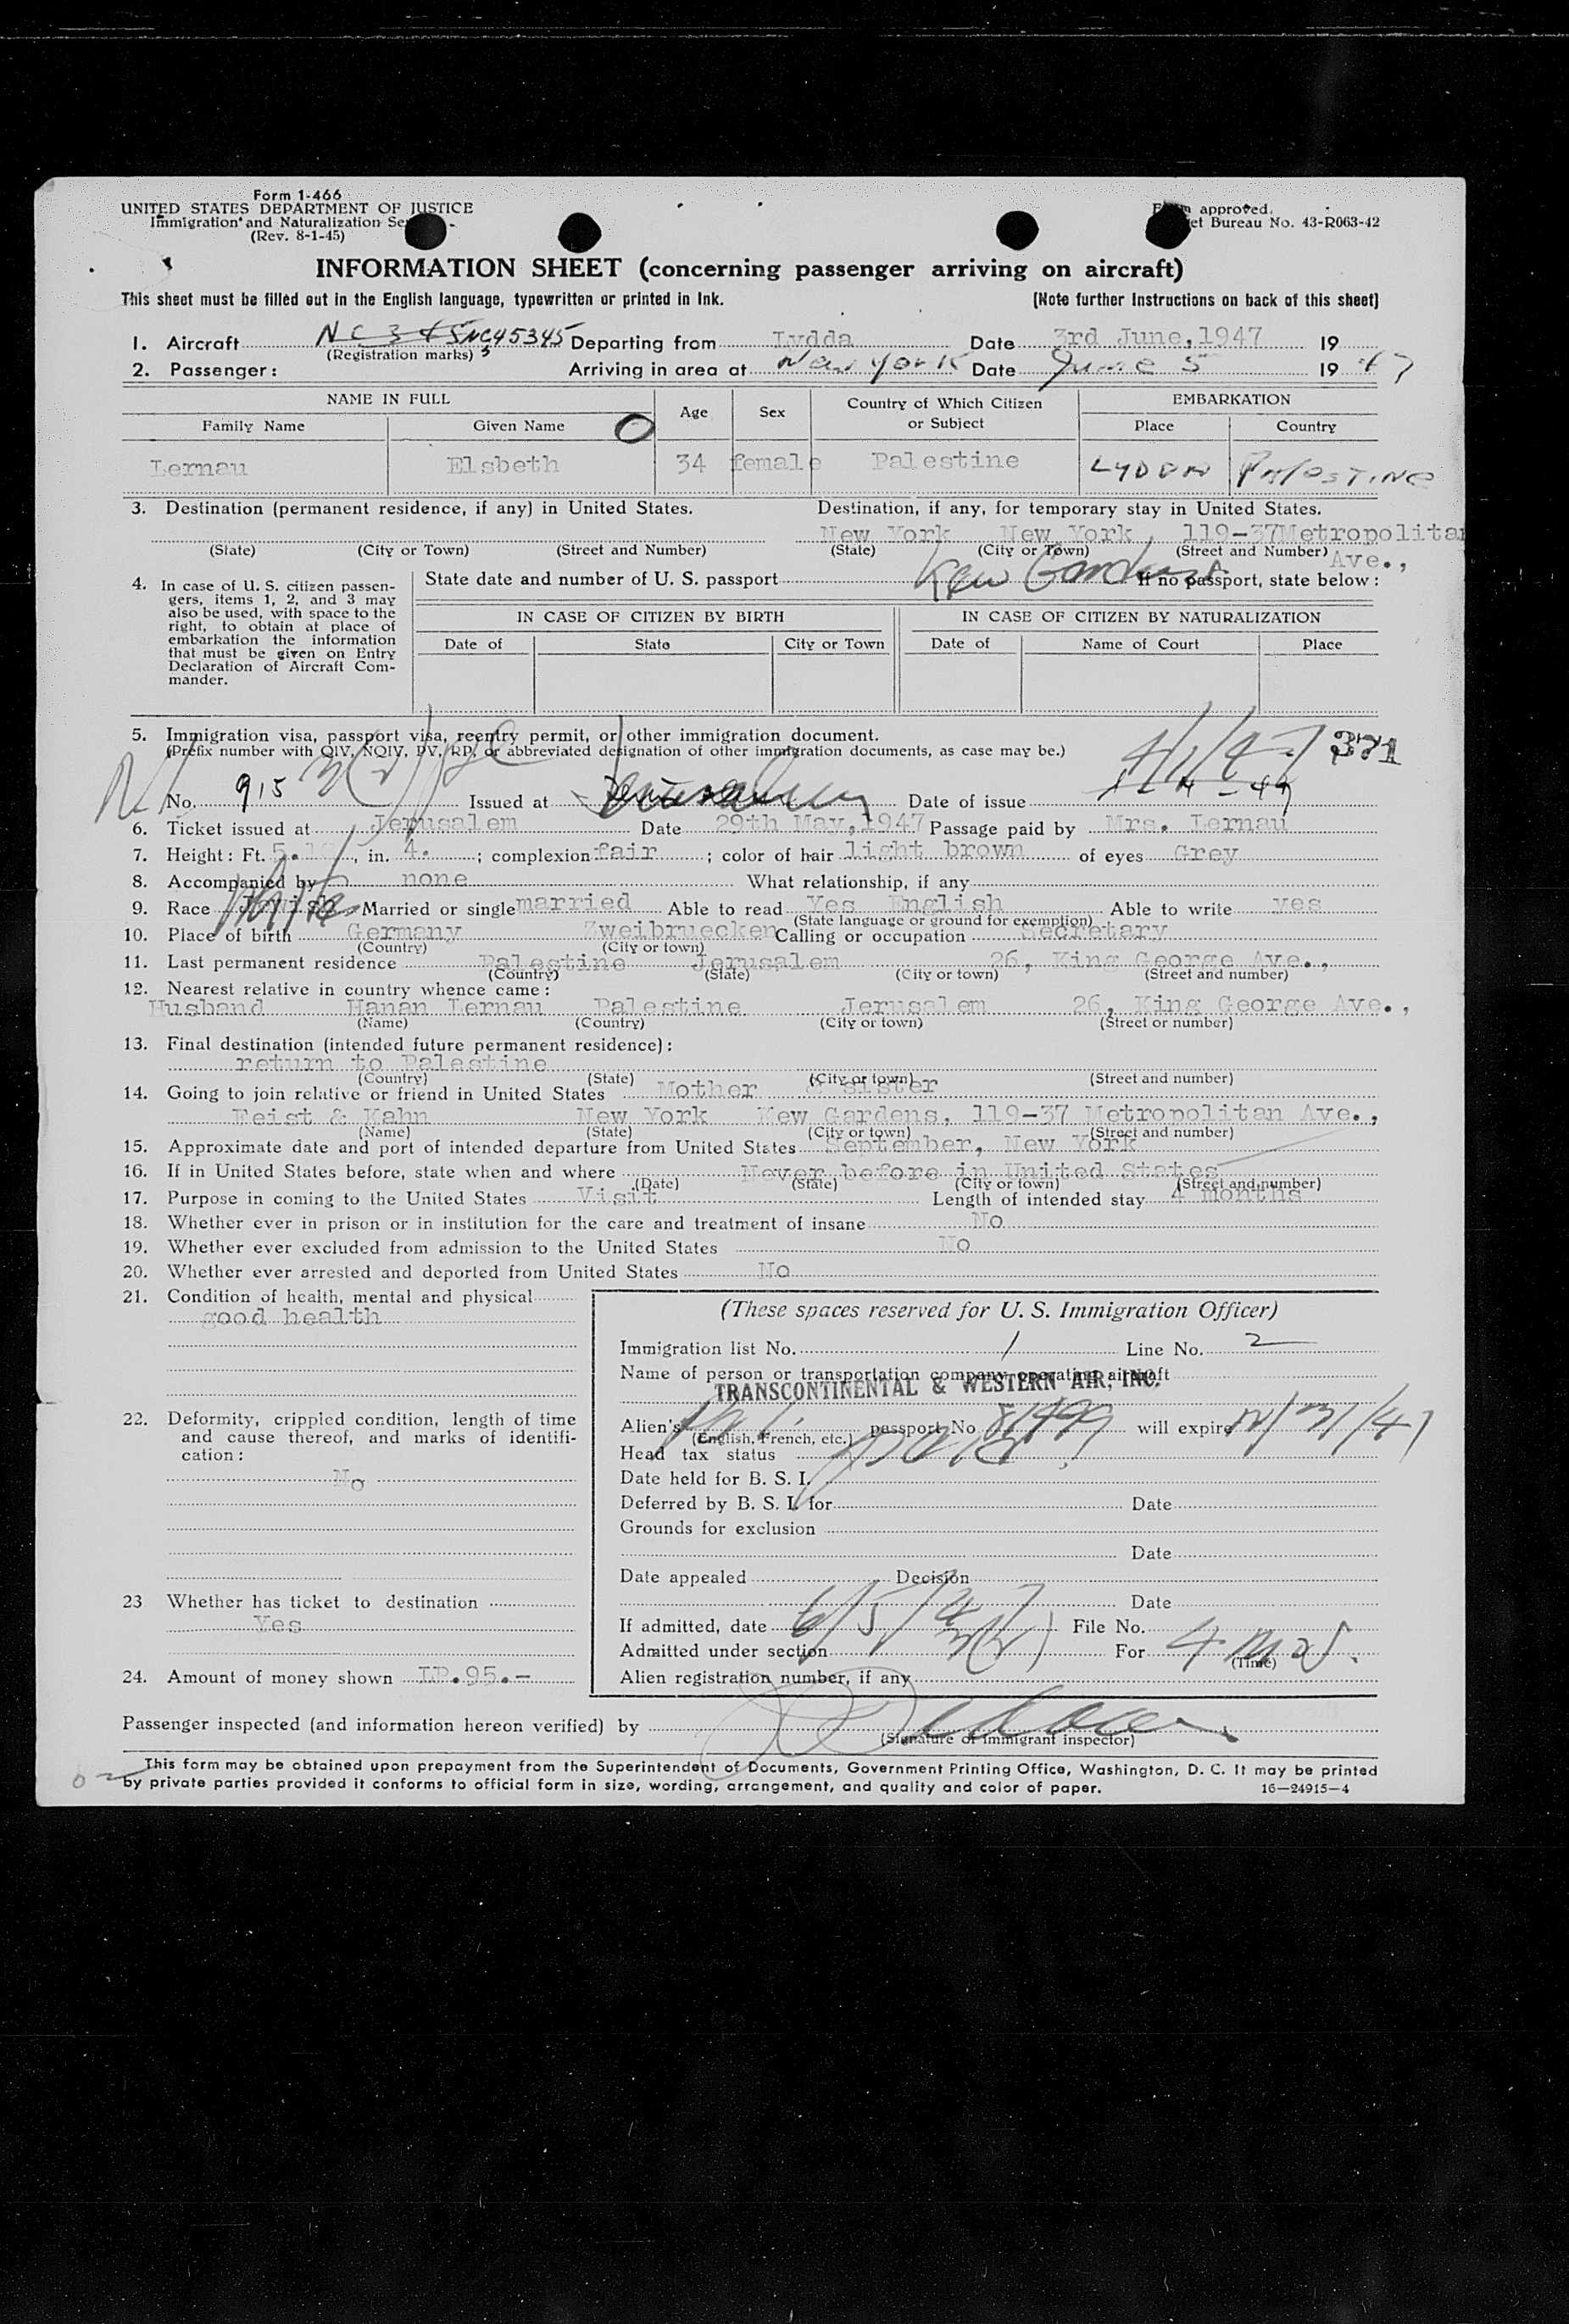 Form 1-466
UNITED STATES DEPARTMENT OF JUSTICE
Immigration and Naturalization Se
(Rev. 8-1-45)
approved.
et Bureau No. 43-R063-42
INFORMATION SHEET (concerning passenger arriving on aircraft)
This sheet must be filled out in the English language, typewritten or printed in Ink. (Note further Instructions on back of this sheet)
1. Aircraft NC45345 Departing from Lydda Date 3rd June, 1947 19
(Registration marks)
2. Passenger: Arriving in area at New York Date June 5 19 47
NAME IN FULL Age Sex Country of Which Citizen or Subject EMBARKATION
Family Name Given Name Place Country
Lernau Elsbeth 34 female Palestine LYDDA Palestine
3. Destination (permanent residence, if any) in United States. Destination, if any, for temporary stay in United States.
New York New York, 119-37 Metropolitan
(State) (City or Town) (Street and Number) (State) (City or Town) (Street and Number) Ave.,
Kew Gardens
4. In case of U. S. citizen passen-
gers, items 1, 2, and 3 may
also be used, with space to the
right, to obtain at place of
embarkation the information
that must be given on Entry
Declaration of Aircraft Com-
mander.
State date and number of U. S. passport If no passport, state below:
IN CASE OF CITIZEN BY BIRTH IN CASE OF CITIZEN BY NATURALIZATION
Date of State City or Town Date of Name of Court Place
5. Immigration visa, passport visa, reentry permit, or other immigration document.
(Prefix number with QIV, NQIV, PV, RP, or abbreviated designation of other immigration documents, as case may be.)
4/1/47 371
No. 915 3(2) Issued at Jerusalem Date of issue 1-4-47
6. Ticket issued at Jerusalem Date 29th May, 1947 Passage paid by Mrs. Lernau
7. Height: Ft. 5. , in. 4. ; complexion fair ; color of hair light brown of eyes Grey
8. Accompanied by none What relationship, if any
9. Race White Married or single married Able to read Yes English Able to write yes
(State language or ground for exemption)
10. Place of birth Germany Zweibruecken Calling or occupation Secretary
(Country) (City or town)
11. Last permanent residence Palestine Jerusalem 26, King George Ave.,
(Country) (State) (City or town) (Street and number)
12. Nearest relative in country whence came:
Husband Hanan Lernau Palestine Jerusalem 26, King George Ave.,
(Name) (Country) (City or town) (Street or number)
13. Final destination (intended future permanent residence):
return to Palestine
(Country) (State) (City or town) (Street and number)
14. Going to join relative or friend in United States Mother & sister
Feist & Kahn New York Kew Gardens, 119-37 Metropolitan Ave.,
(Name) (State) (City or town) (Street and number)
15. Approximate date and port of intended departure from United States September, New York
16. If in United States before, state when and where Never before in United States
(Date) (State) (City or town) (Street and number)
17. Purpose in coming to the United States Visit Length of intended stay 4 months
18. Whether ever in prison or in institution for the care and treatment of insane No
19. Whether ever excluded from admission to the United States No
20. Whether ever arrested and deported from United States No
21. Condition of health, mental and physical
good health
22. Deformity, crippled condition, length of time
and cause thereof, and marks of identifi-
cation:
No
23 Whether has ticket to destination
Yes
24. Amount of money shown LP.95.-
(These spaces reserved for U. S. Immigration Officer)
Immigration list No. 1 Line No. 2
Name of person or transportation company operating aircraft
TRANSCONTINENTAL & WESTERN AIR, INC.
Alien's Pal. passport No. 81499 will expire 12/31/47
(English, French, etc.)
Head tax status paid
Date held for B. S. I.
Deferred by B. S. I. for Date
Grounds for exclusion
Date
Date appealed Decision
Date
If admitted, date 6/5/47 File No.
Admitted under section 3(2) For 4 mos.
(Time)
Alien registration number, if any
Passenger inspected (and information hereon verified) by
(Signature of immigrant inspector)
This form may be obtained upon prepayment from the Superintendent of Documents, Government Printing Office, Washington, D. C. It may be printed
by private parties provided it conforms to official form in size, wording, arrangement, and quality and color of paper. 16-24915-4